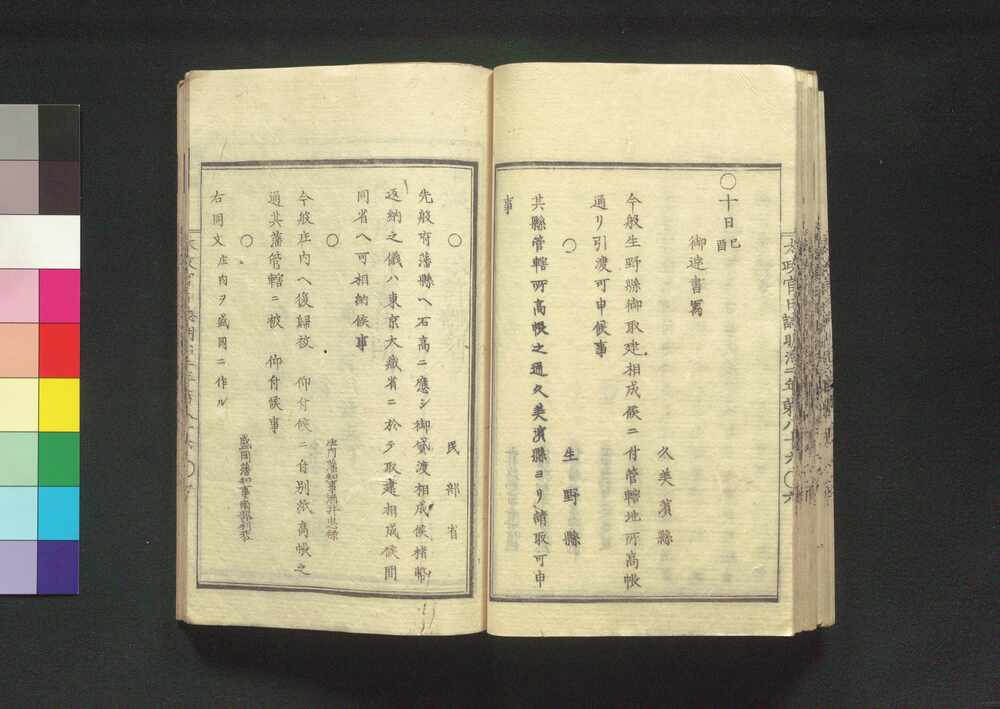 〇十日己酉
御達書寫
久美濱縣
今般生野縣御取建相成候ニ付管轄地所高帳
通リ引渡可申候事
〇
生野縣
其縣管轄所高帳之通久美濱縣ヨリ請取可申
事
太政官日誌明治二年第八十六〇六
〇
民部省
先般府藩縣ヘ石高ニ應シ御貸渡相成候楮幣
返納之儀ハ東京大藏省ニ於テ取建相成候間
同省ヘ可相納候事
〇
庄内藩知事酒井忠祿
今般庄内ヘ復歸被 仰付候ニ付別紙高帳之
通其藩管轄ニ被 仰付候事
〇
盛岡藩知事南部利恭
右同文庄内ヲ盛岡ニ作ル